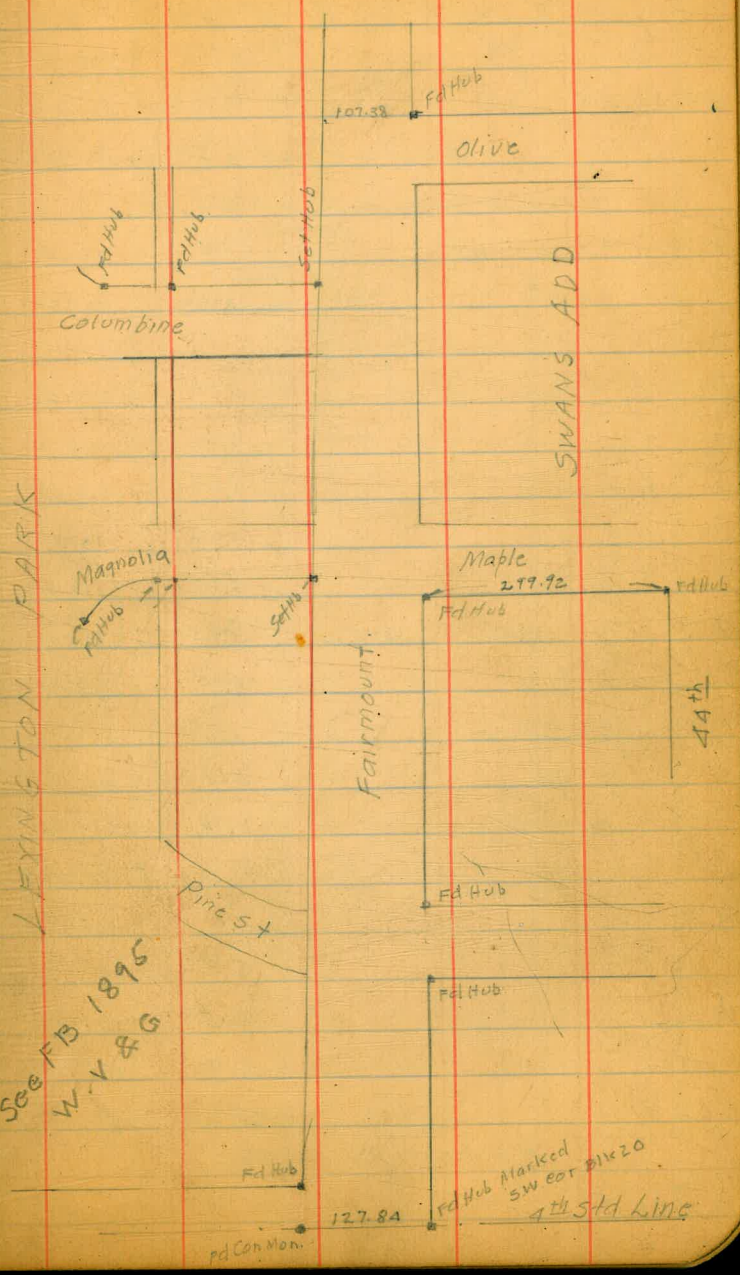 Fd Hub
107.38
Olive
Fd Hub
Fd Hub
Set Hub
Columbine
SWANS ADD
LEXINGTON PARK
Magnolia
Fd Hub
Set Hb
Maple
299.92
Fd Hub
Fd Hub
Fairmount
44th
Pine St.
Fd Hub
Fd Hub
See FB 1895
W. V & G
Fd Hub
Fd Hub Marked
SW cor Blk 20
127.84
4th Std Line
Fd Con Mon.